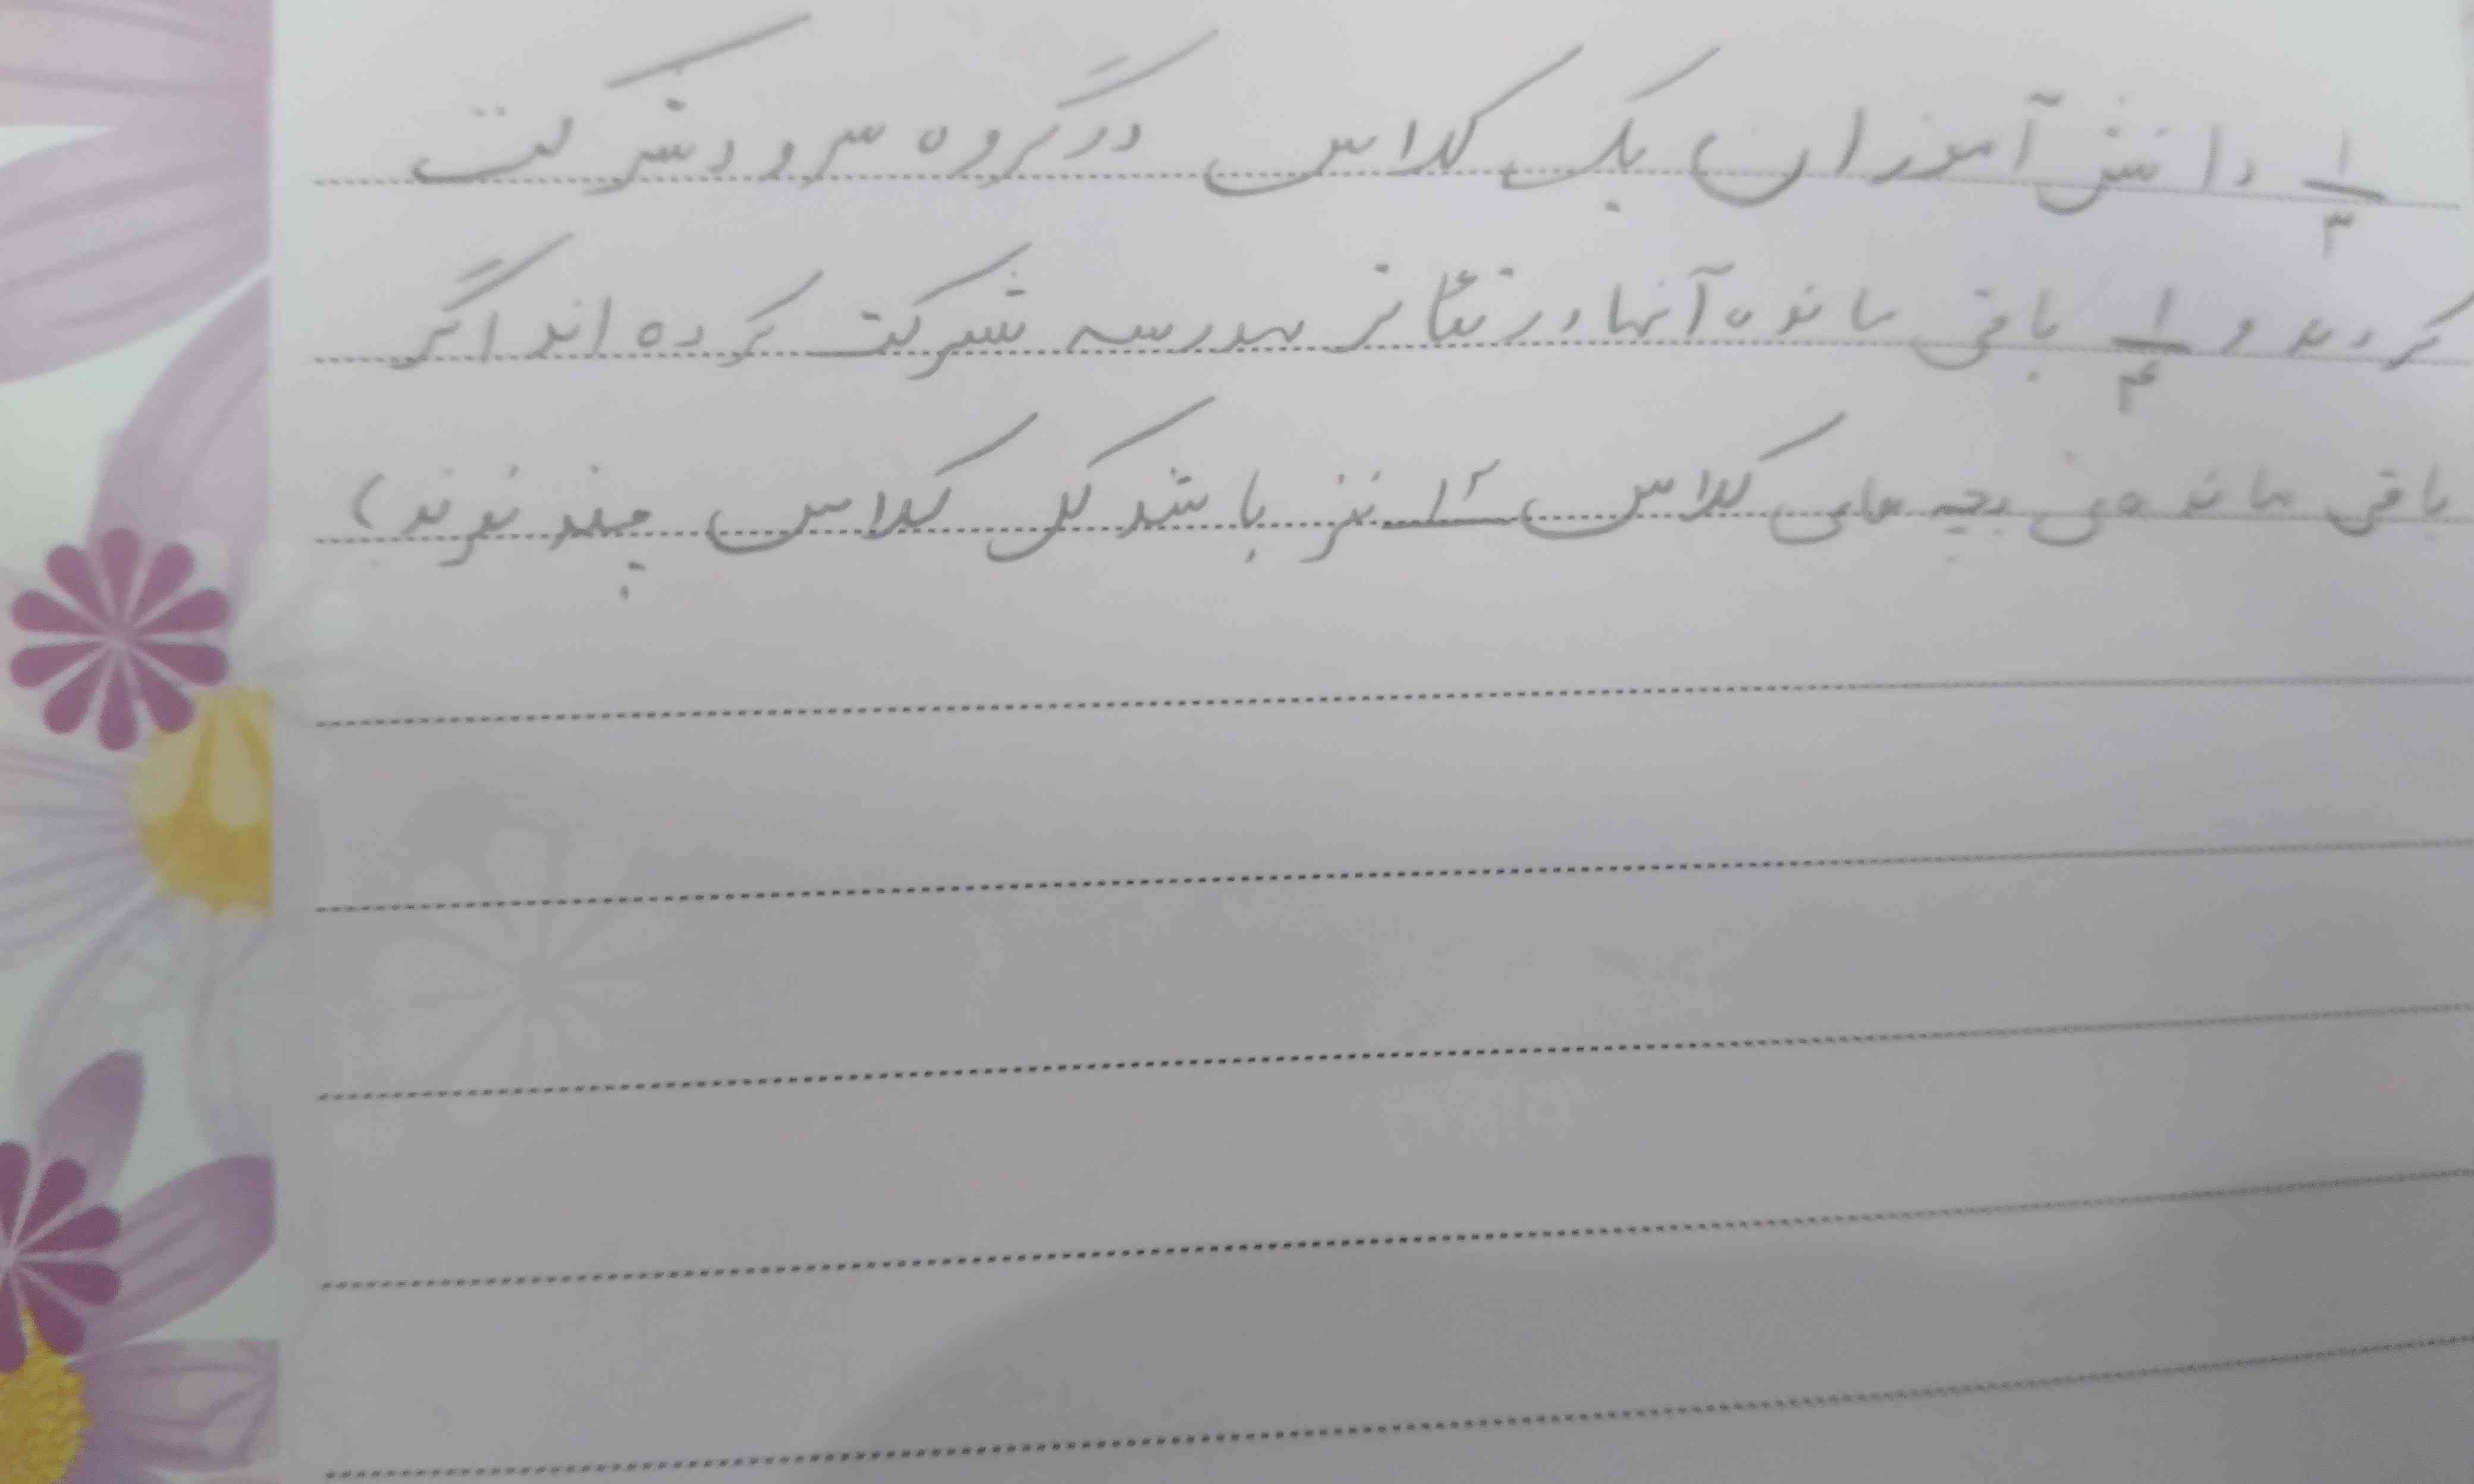 ۱/۳ دانش آموزان یک کلاس در گروه سرود شرکت
کردند و ۱/۴ باقی مانده آنها در تئاتر مدرسه شرکت کرده اند اگر
باقی مانده ی بچه های کلاس ۱۲ نفر باشد کل کلاس چند نفرند؟